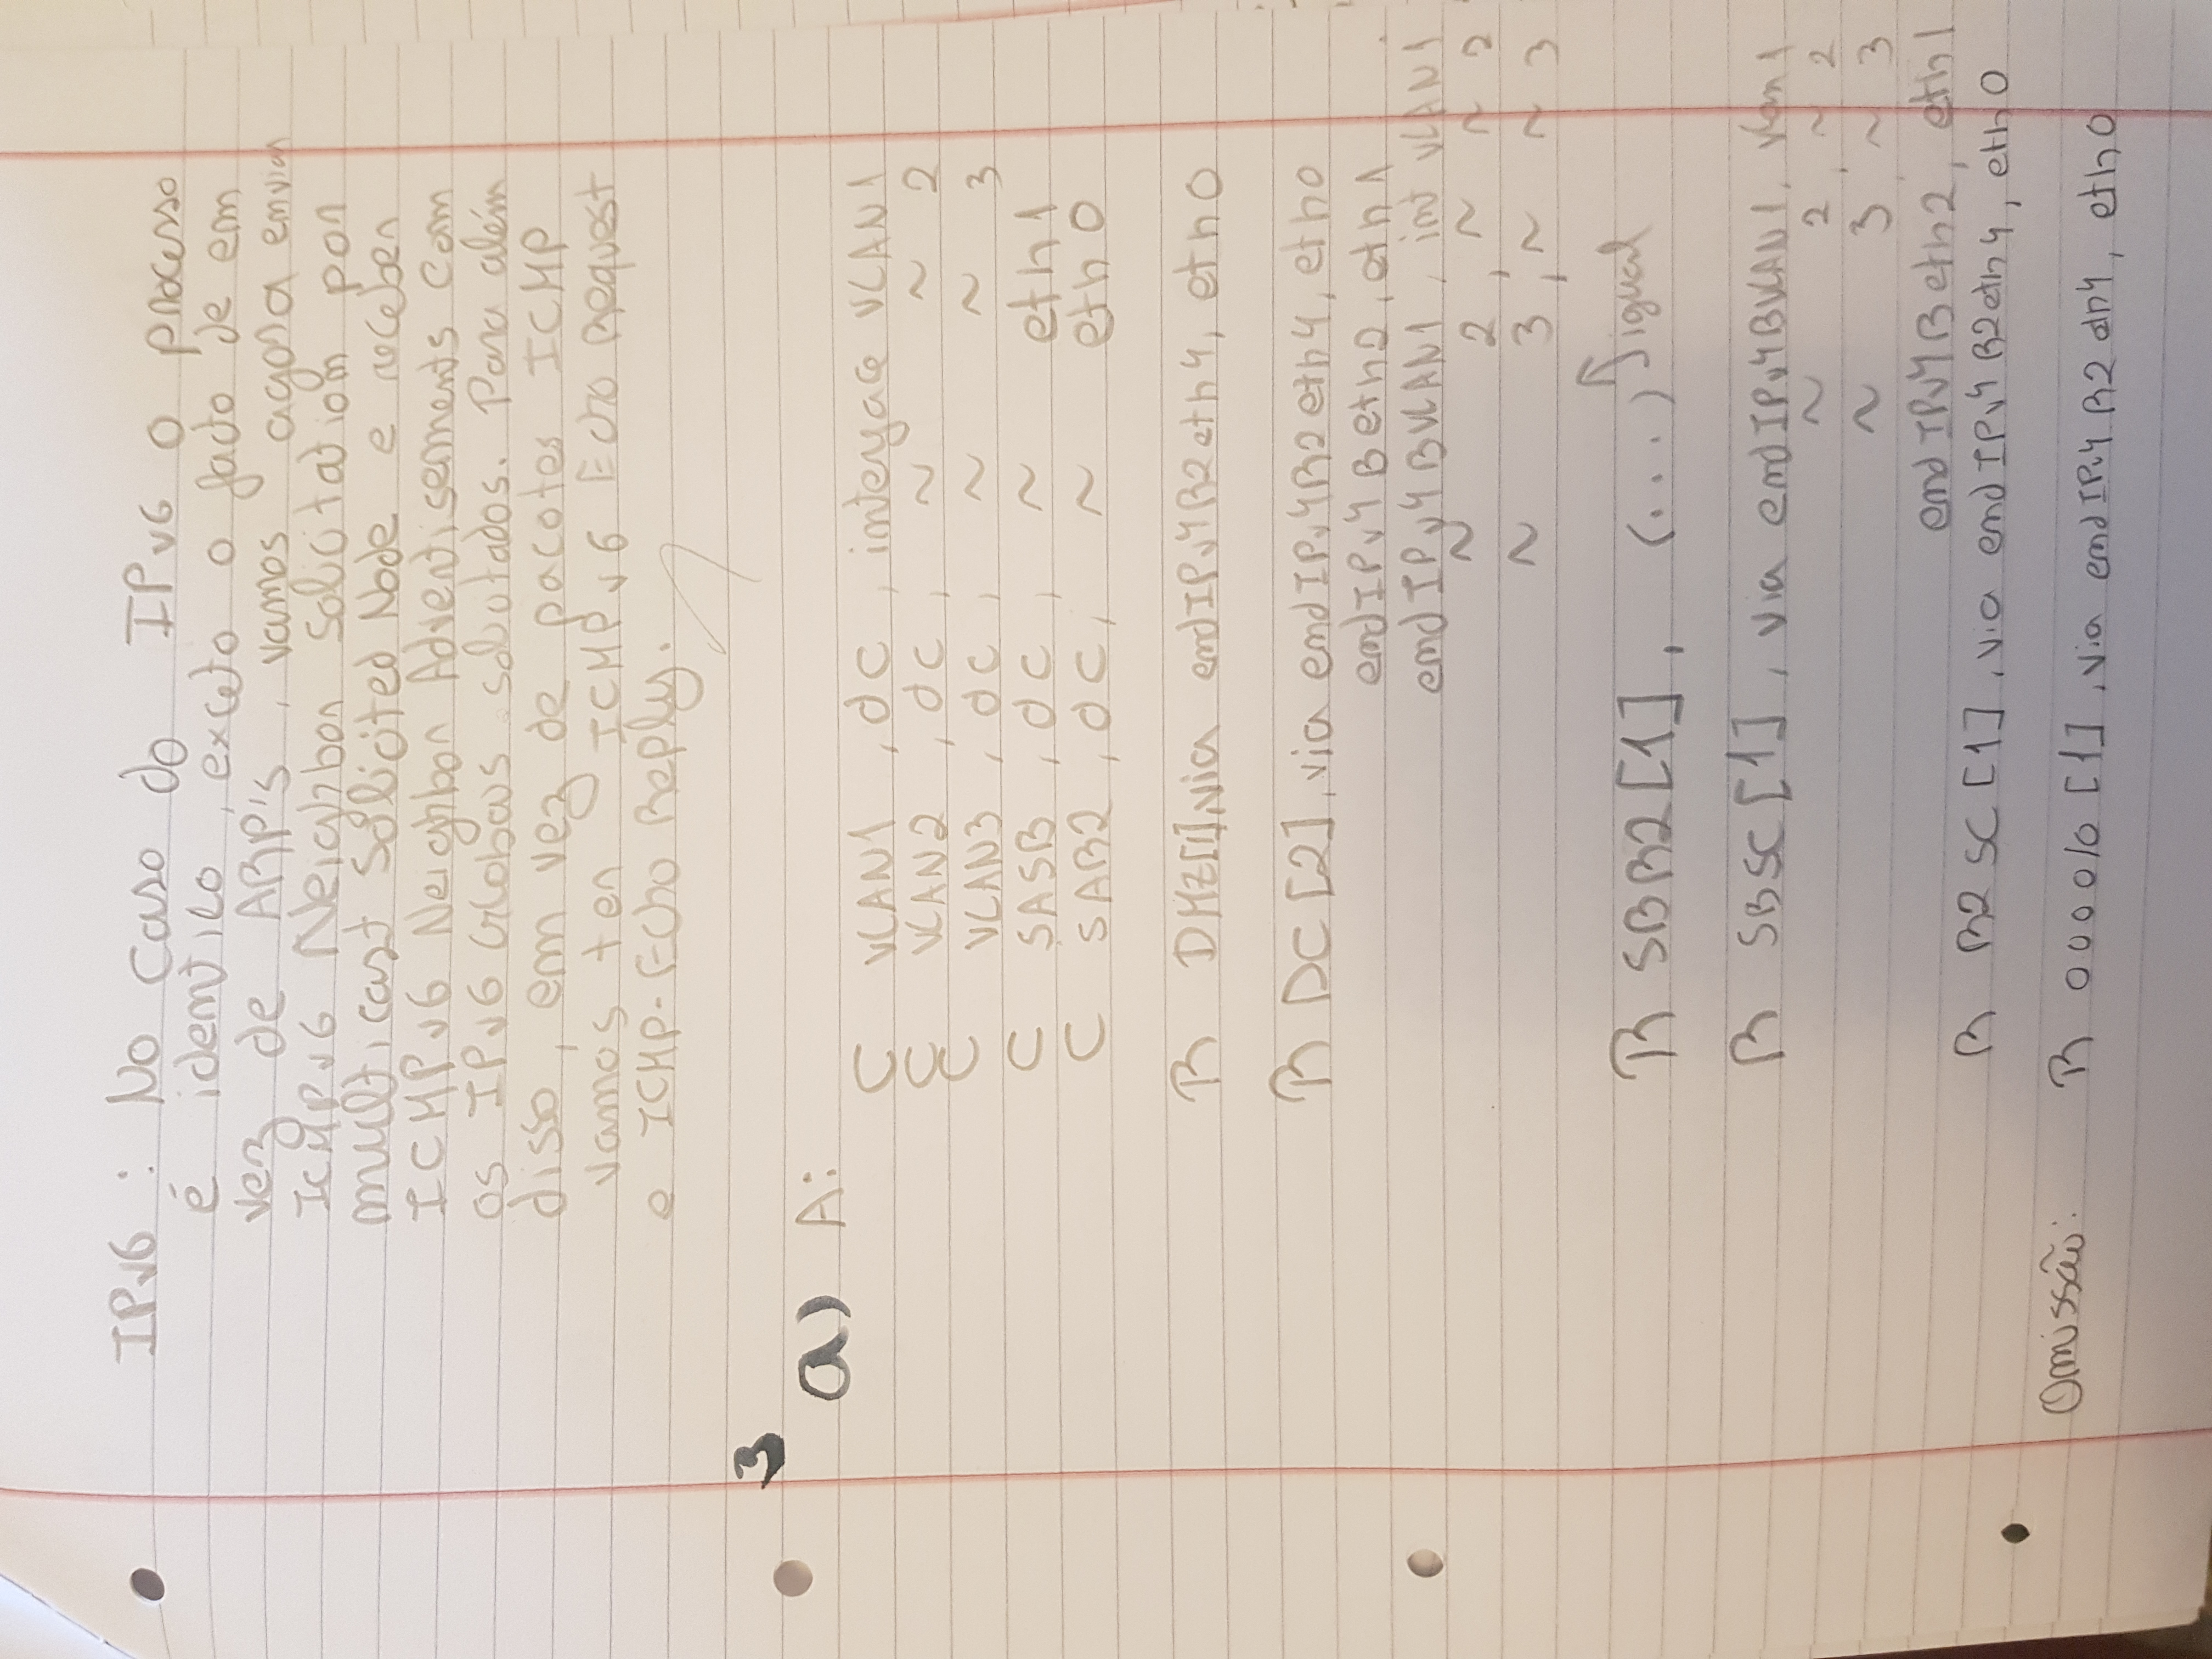 IPv6 : No caso do IPv6 o processo
é identico, exceto o facto de em
vez de ARP's, vamos agora enviar
ICMPv6 Neighbor Solicitation por
multicast Solicited Node e receber
ICMPv6 Neighbor Advertisements com
os IPv6 Globais solicitados. Para além
disso, em vez de pacotes ICMP
vamos ter ICMPv6 Echo Request
e ICMP-Echo Reply.
3
a) A:
C VLAN1, dc, interface VLAN1
C VLAN2, dc, ~ ~ 2
C VLAN3, dc, ~ ~ 3
C SASB, dc, ~ eth1
C SAR2, dc, ~ eth0
R DMZ[1], via endIPv4R2eth4, eth0
R DC[2], via endIPv4R2eth4, eth0
endIPv4Beth2, eth1
endIPv4BVLAN1, int VLAN1
~ 2, ~ ~ 2
~ 3, ~ ~ 3
R SBR2[1], (...) igual
R SBSC[1], via endIPv4BVLAN1, vlan1
~ 2, ~ 2
~ 3, ~ 3
endIPv4Beth2, eth1
R R2SC[1], via endIPv4R2eth4, eth0
Omissão: R 0000/0 [1], via endIPv4R2eth4, eth0